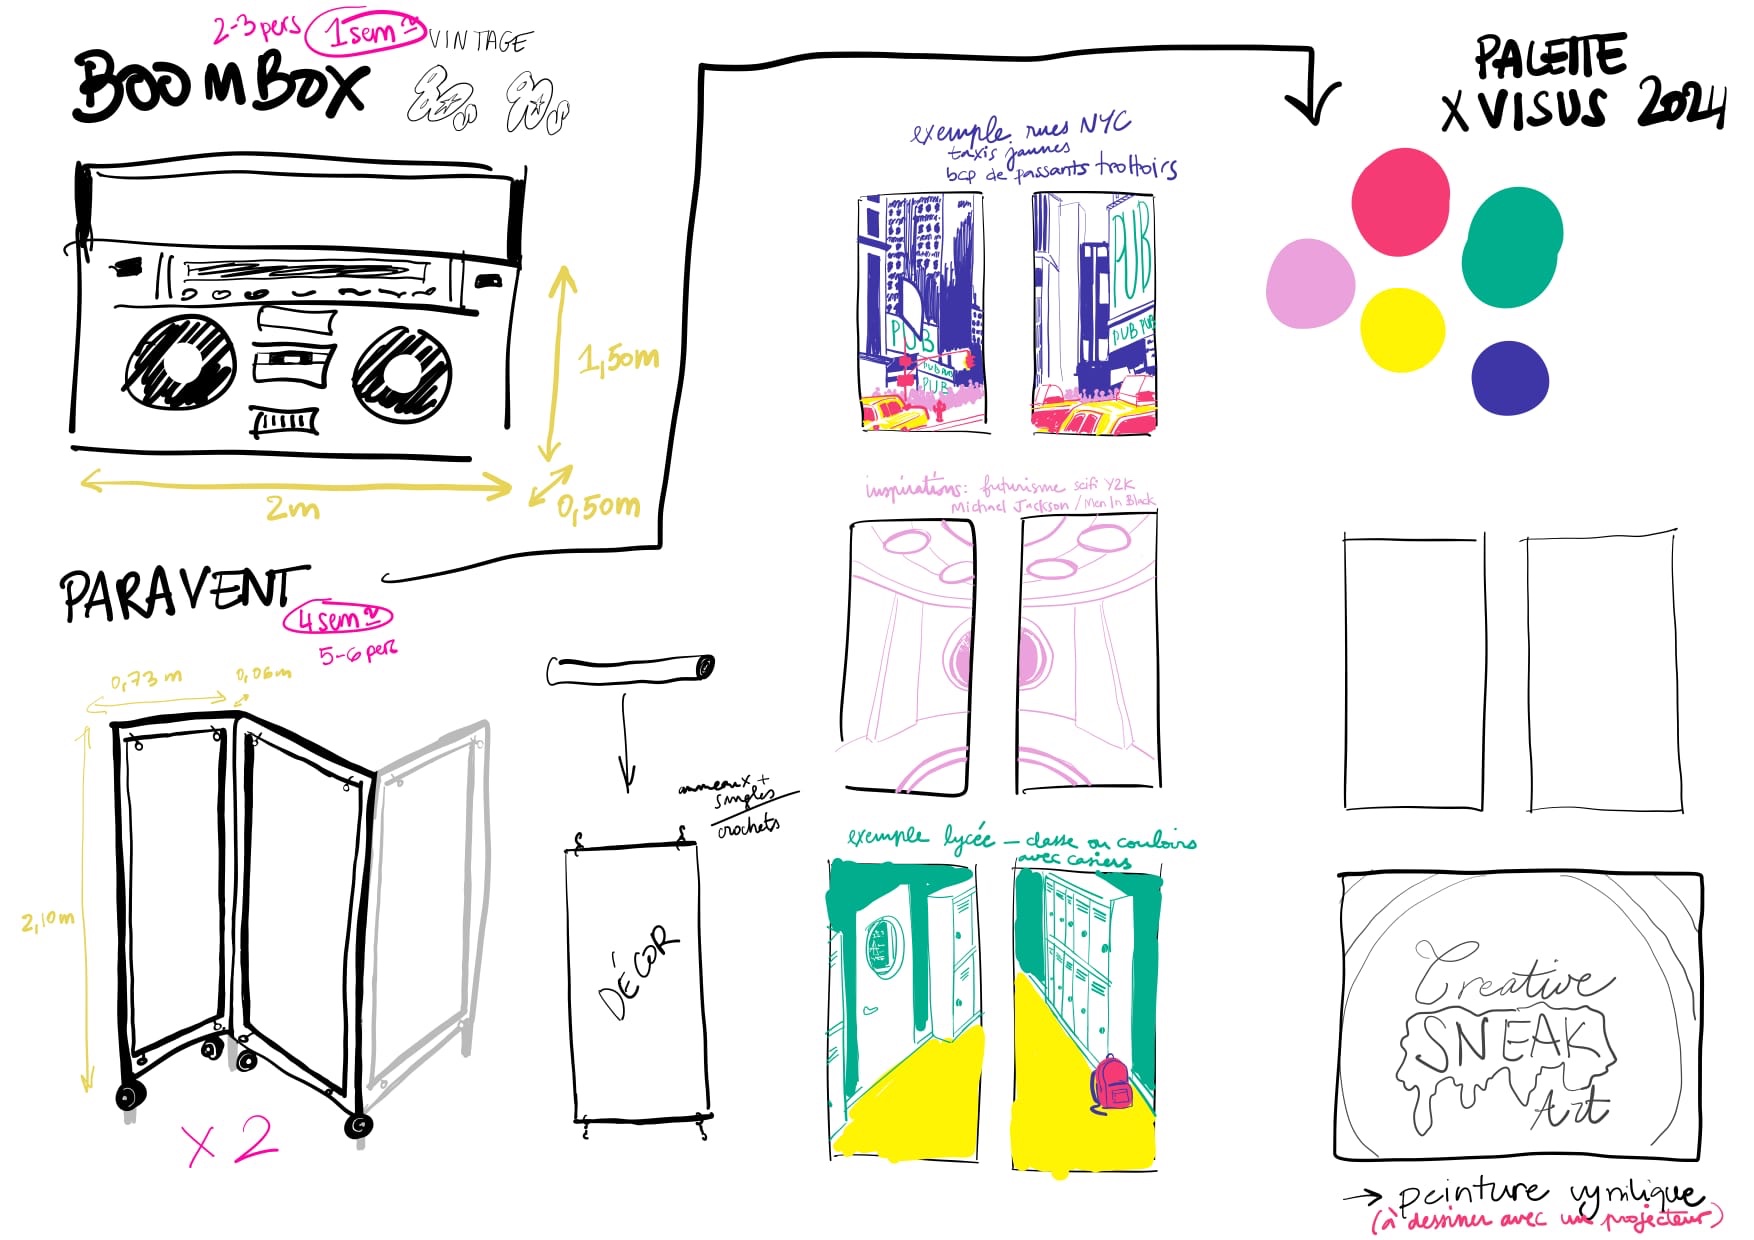 2-3 pers 1 sem
VINTAGE
BOOMBOX
80. 90.
1,50m
2m
0,50m
PARAVENT
4 sem
5-6 pers
0,73 m
0,06m
2,10m
X 2
anneaux +
singles
crochets
DÉCOR
exemple rues NYC
taxis jaunes
bcp de passants trottoirs
PUB
PUB PUB
PUB
PUB
PUB PUB
inspirations: futurisme scifi Y2K
Michael Jackson / Men In Black
exemple lycée – classe ou couloirs
avec casiers
PALETTE
X VISUS 2024
Creative
SNEAK
Art
→ peinture vynilique
(à dessiner avec un projecteur)